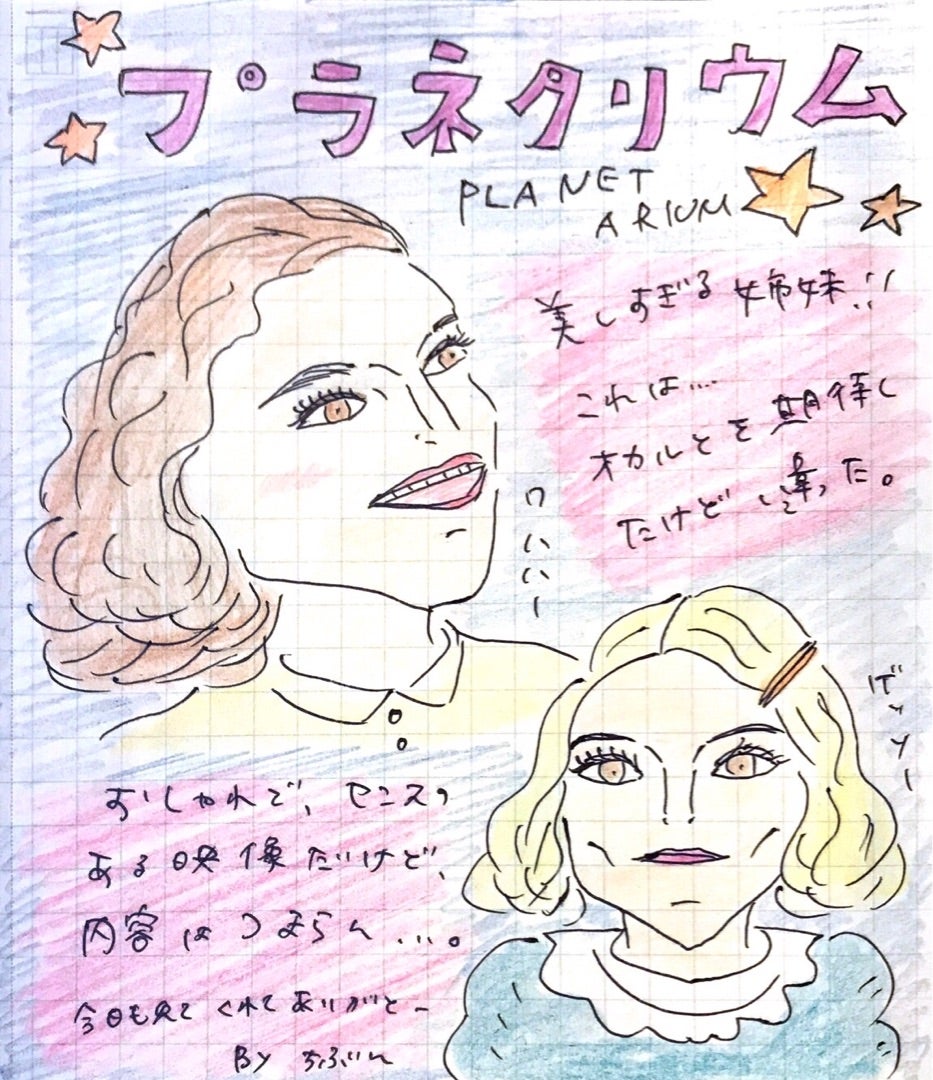 プラネタリウム
PLANET
ARIUM
美しすぎる姉妹!!
これは....
オカルとを期待し
たけど違った。
ワハハー
おしゃれで、センスの
ある映像だけど、
内容はつまらん...。
今日も見てくれてありがとー
By おぶん